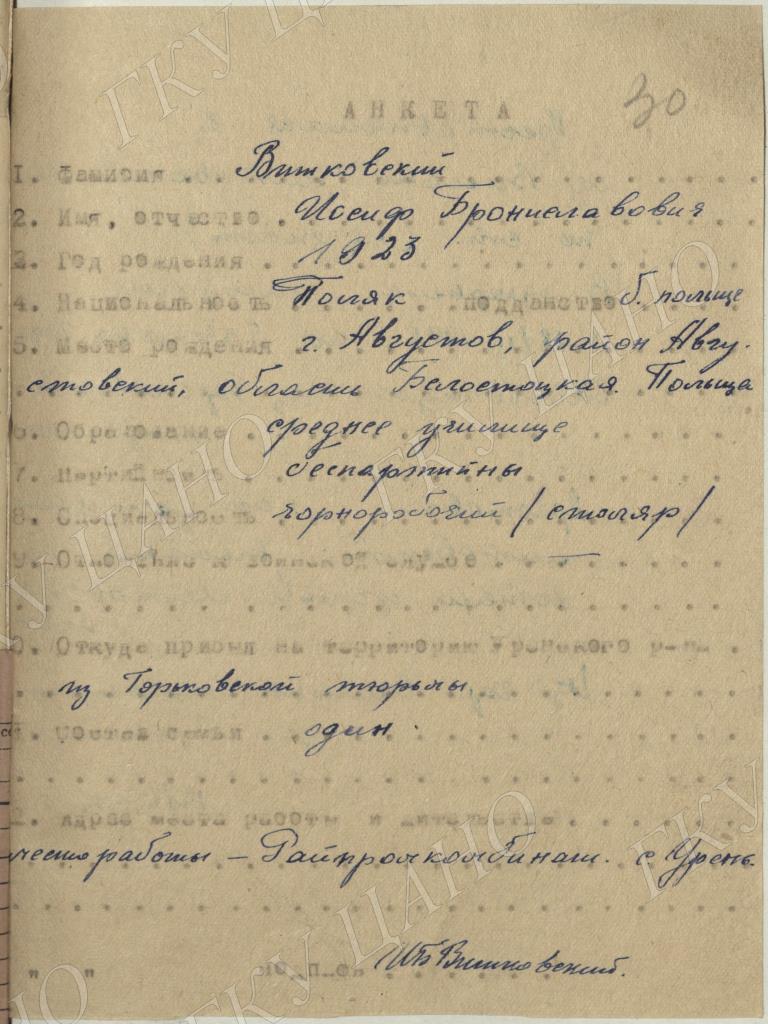 30
АНКЕТА
1. Фамилия . . Витковский
2. Имя, отчество . Иосиф Брониславовия
3. Год рождения . . 1923
4. Национальность Поляк подданство б. польще
5. Место рождения г. Августов, район Авгу-
стовский, область Белостоцкая. Польща
6. Образование . среднее училище
7. Партийность . беспартийны
8. Специальность чорноробочий /столяр/
9. Отношение к воинской службе . . . —
0. Откуда прибыл на территорию Уренского р-на .
из Горьковской тюрьмы
. Состав семьи . . один .
2. Адрес места работы и жительства
место работы – Райпромкомбинат. с Урень.
" " Подпись ИБВитковский.
ГКУ ЦАНО